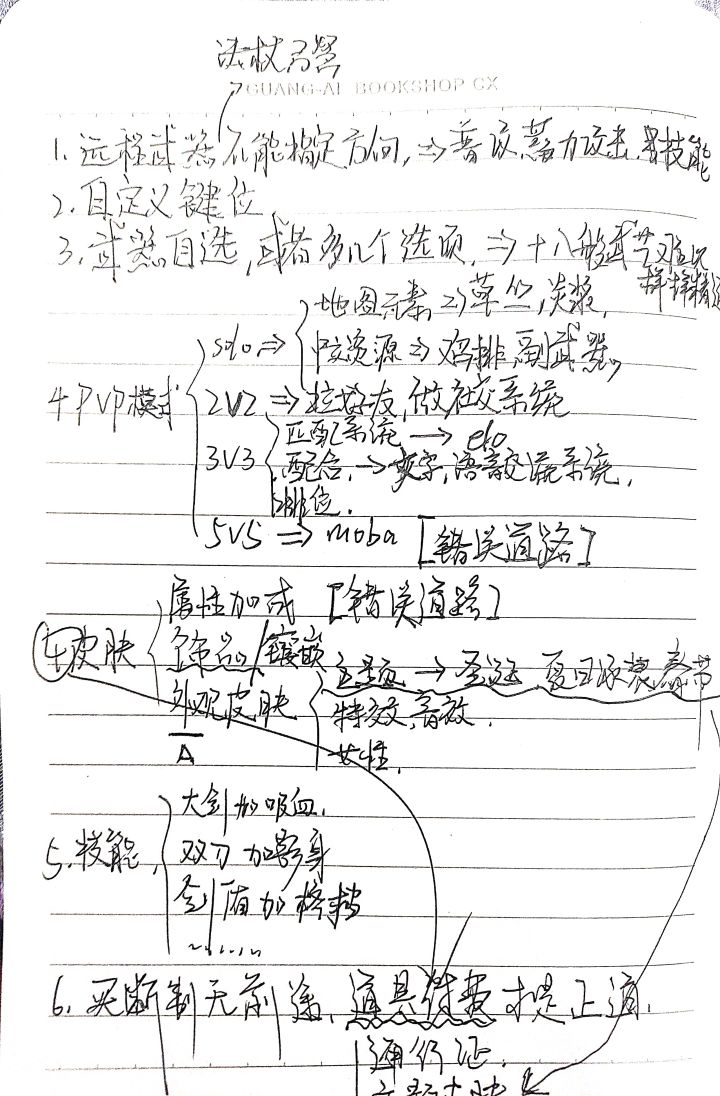 法杖弓弩
GUANG-AI BOOKSHOP CX
1. 远程武器不能指定方向, ⇒ 普攻, 蓄力攻击, 技能
2. 自定义键位
3. 武器自选, 或者多几个选项, ⇒ 十八般武艺难以
样样精通
地图元素 ⇒ 草丛, 炎浆,
solo ⇒
资源 ⇒ 鸡排, 副武器,
4. PVP模式
2V2 ⇒ 拉好友, 做社交系统
匹配系统 → elo
3V3
配合, → 文字, 语音交流系统,
排位.
5V5 ⇒ moba [错误道路]
属性加成 [错误道路]
4 皮肤
饰品/镶嵌
主题 → 圣诞, 夏日泳装, 春节
外观皮肤
特效, 音效.
A
女性.
大剑加吸血,
5. 技能,
双刀加影身
剑盾加格挡
......
6. 买断制无前途, 道具付费才是正道.
通行证.